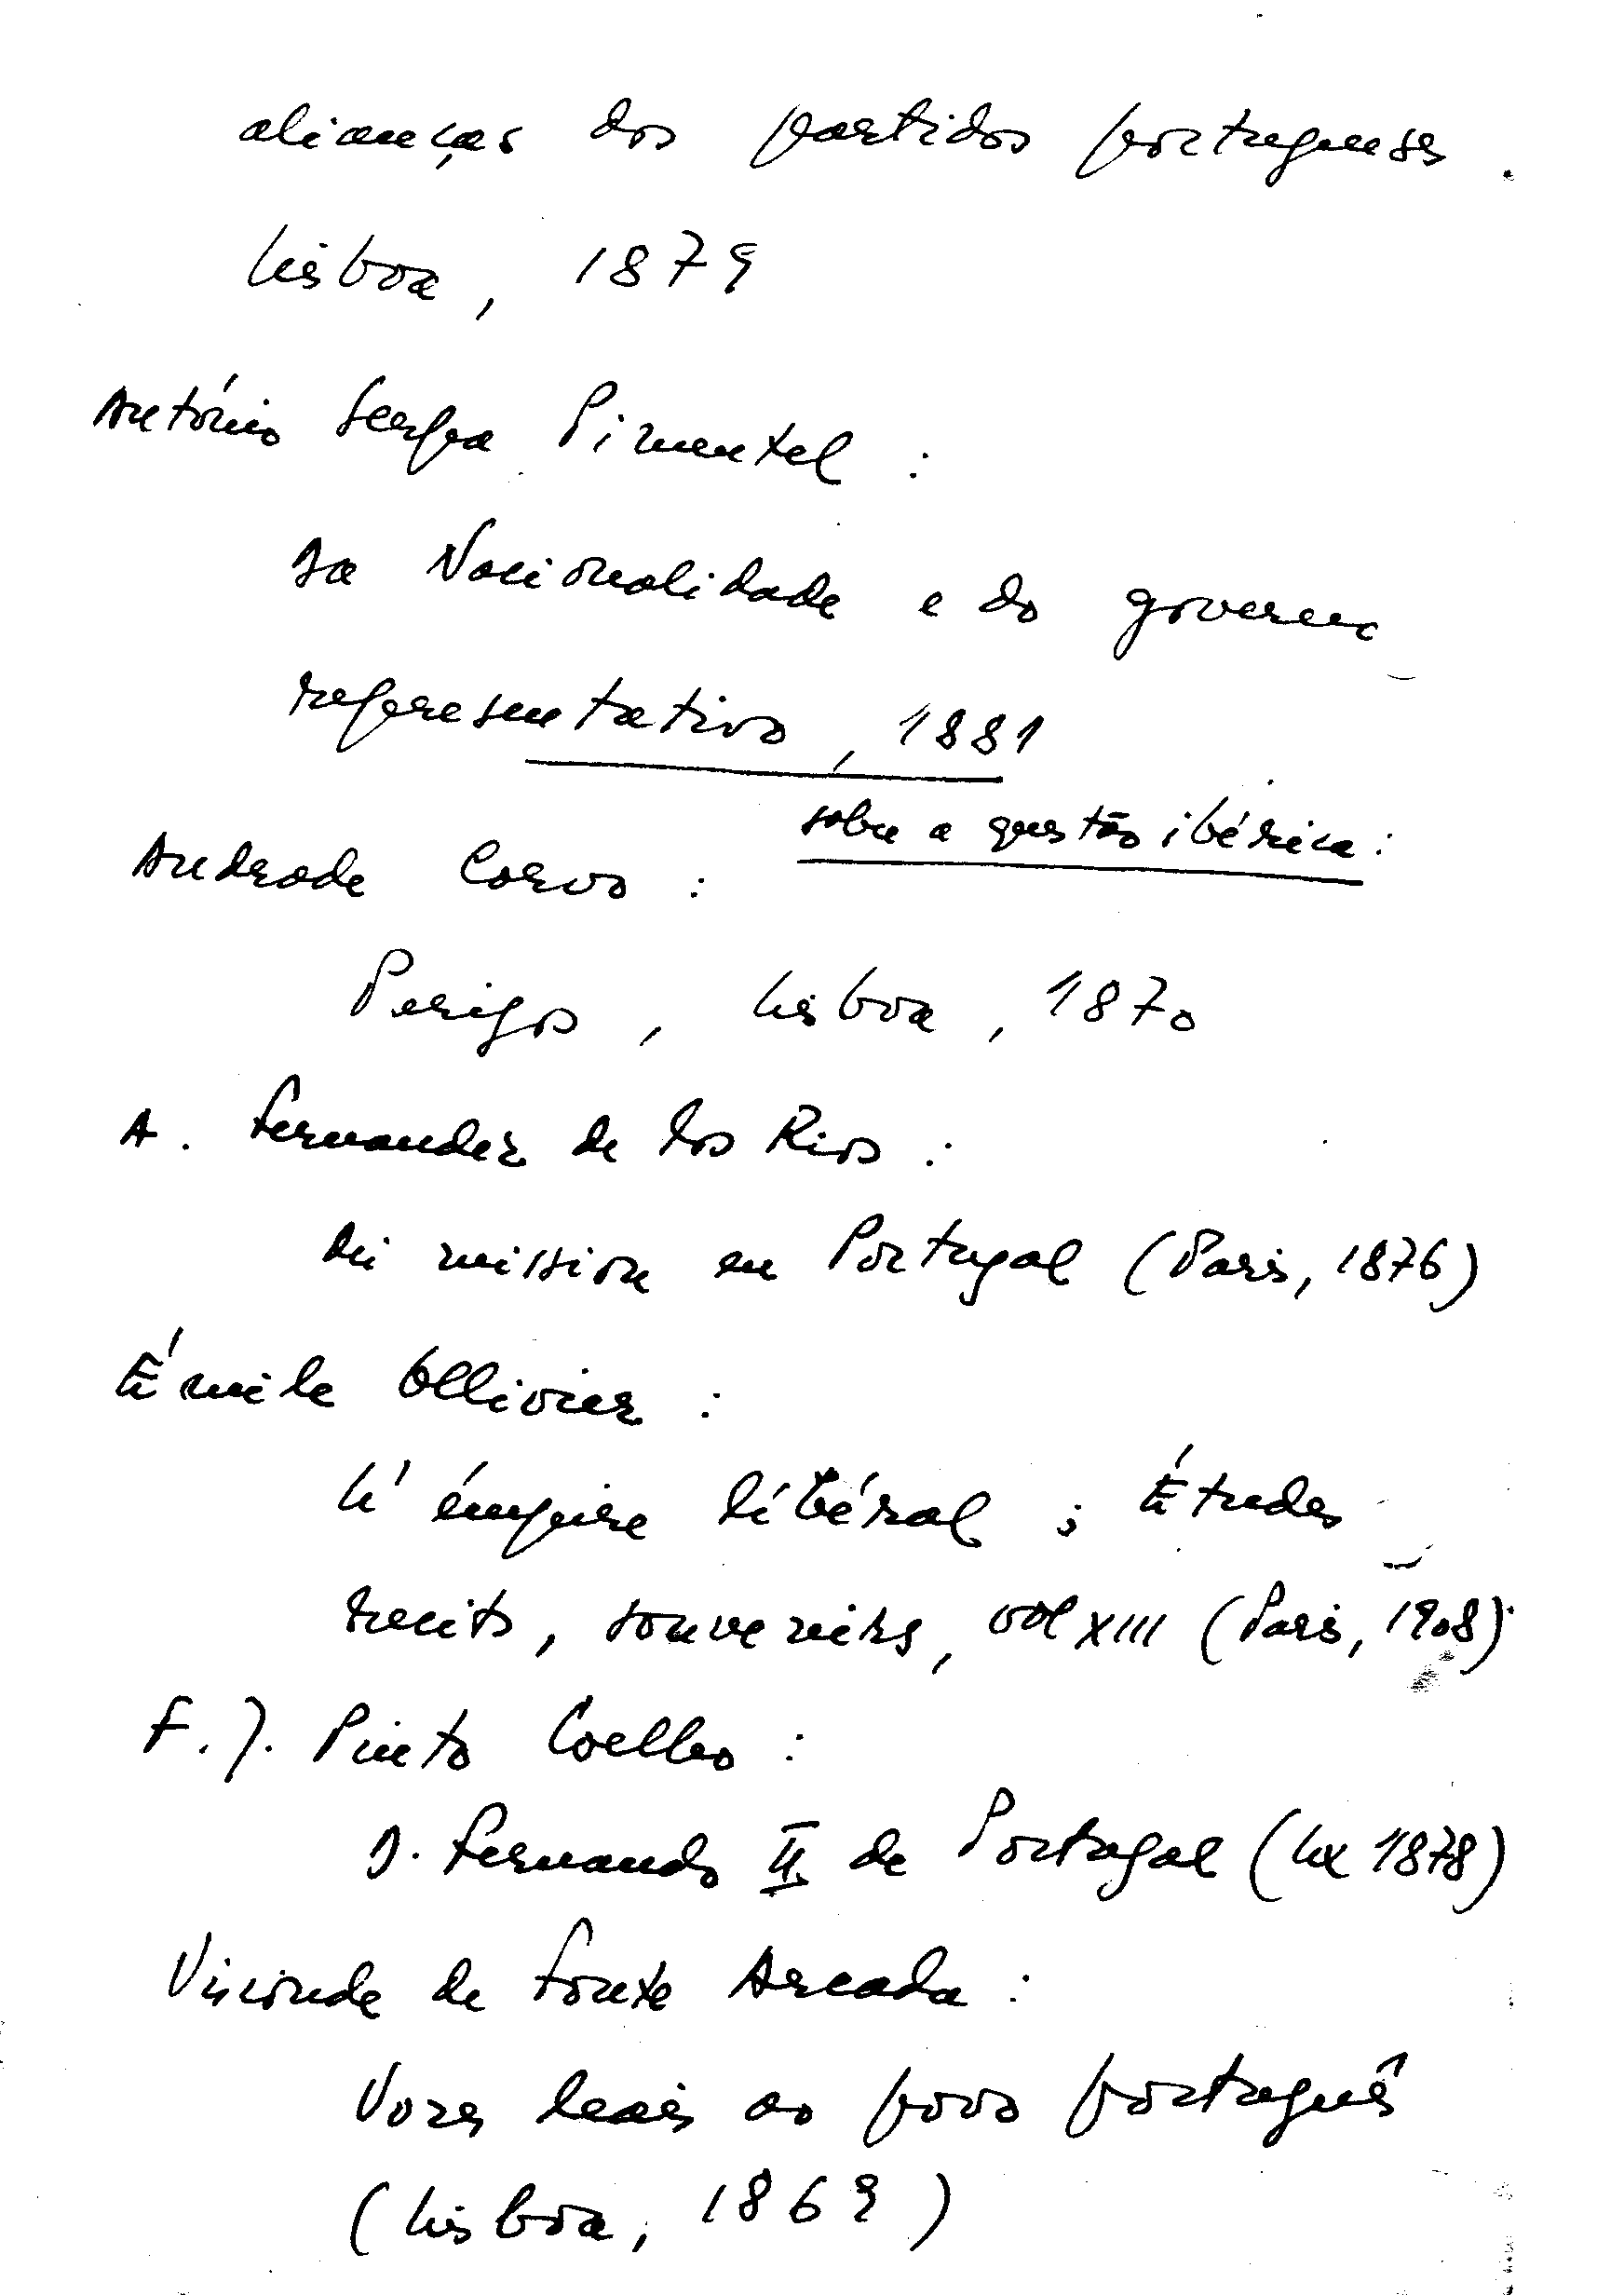 alianças dos partidos portugueses.
Lisboa, 1879
António Serpa Pimentel :
Da Nacionalidade e do governo
representativo, 1881
sobre a questão ibérica :
Andrade Corvo :
Perigos, Lisboa, 1870
A. Fernandez de los Rios :
Mi mission en Portugal (Paris, 1876)
Émile Ollivier :
L'émpire libéral ; Études
recits, souvenirs, vol XIII (Paris, 1908)
F. J. Pinto Coelho :
D. Fernando II de Portugal (Lx 1878)
Visconde de Fonte Arcada :
Vozes leais ao povo português
(Lisboa, 1869)